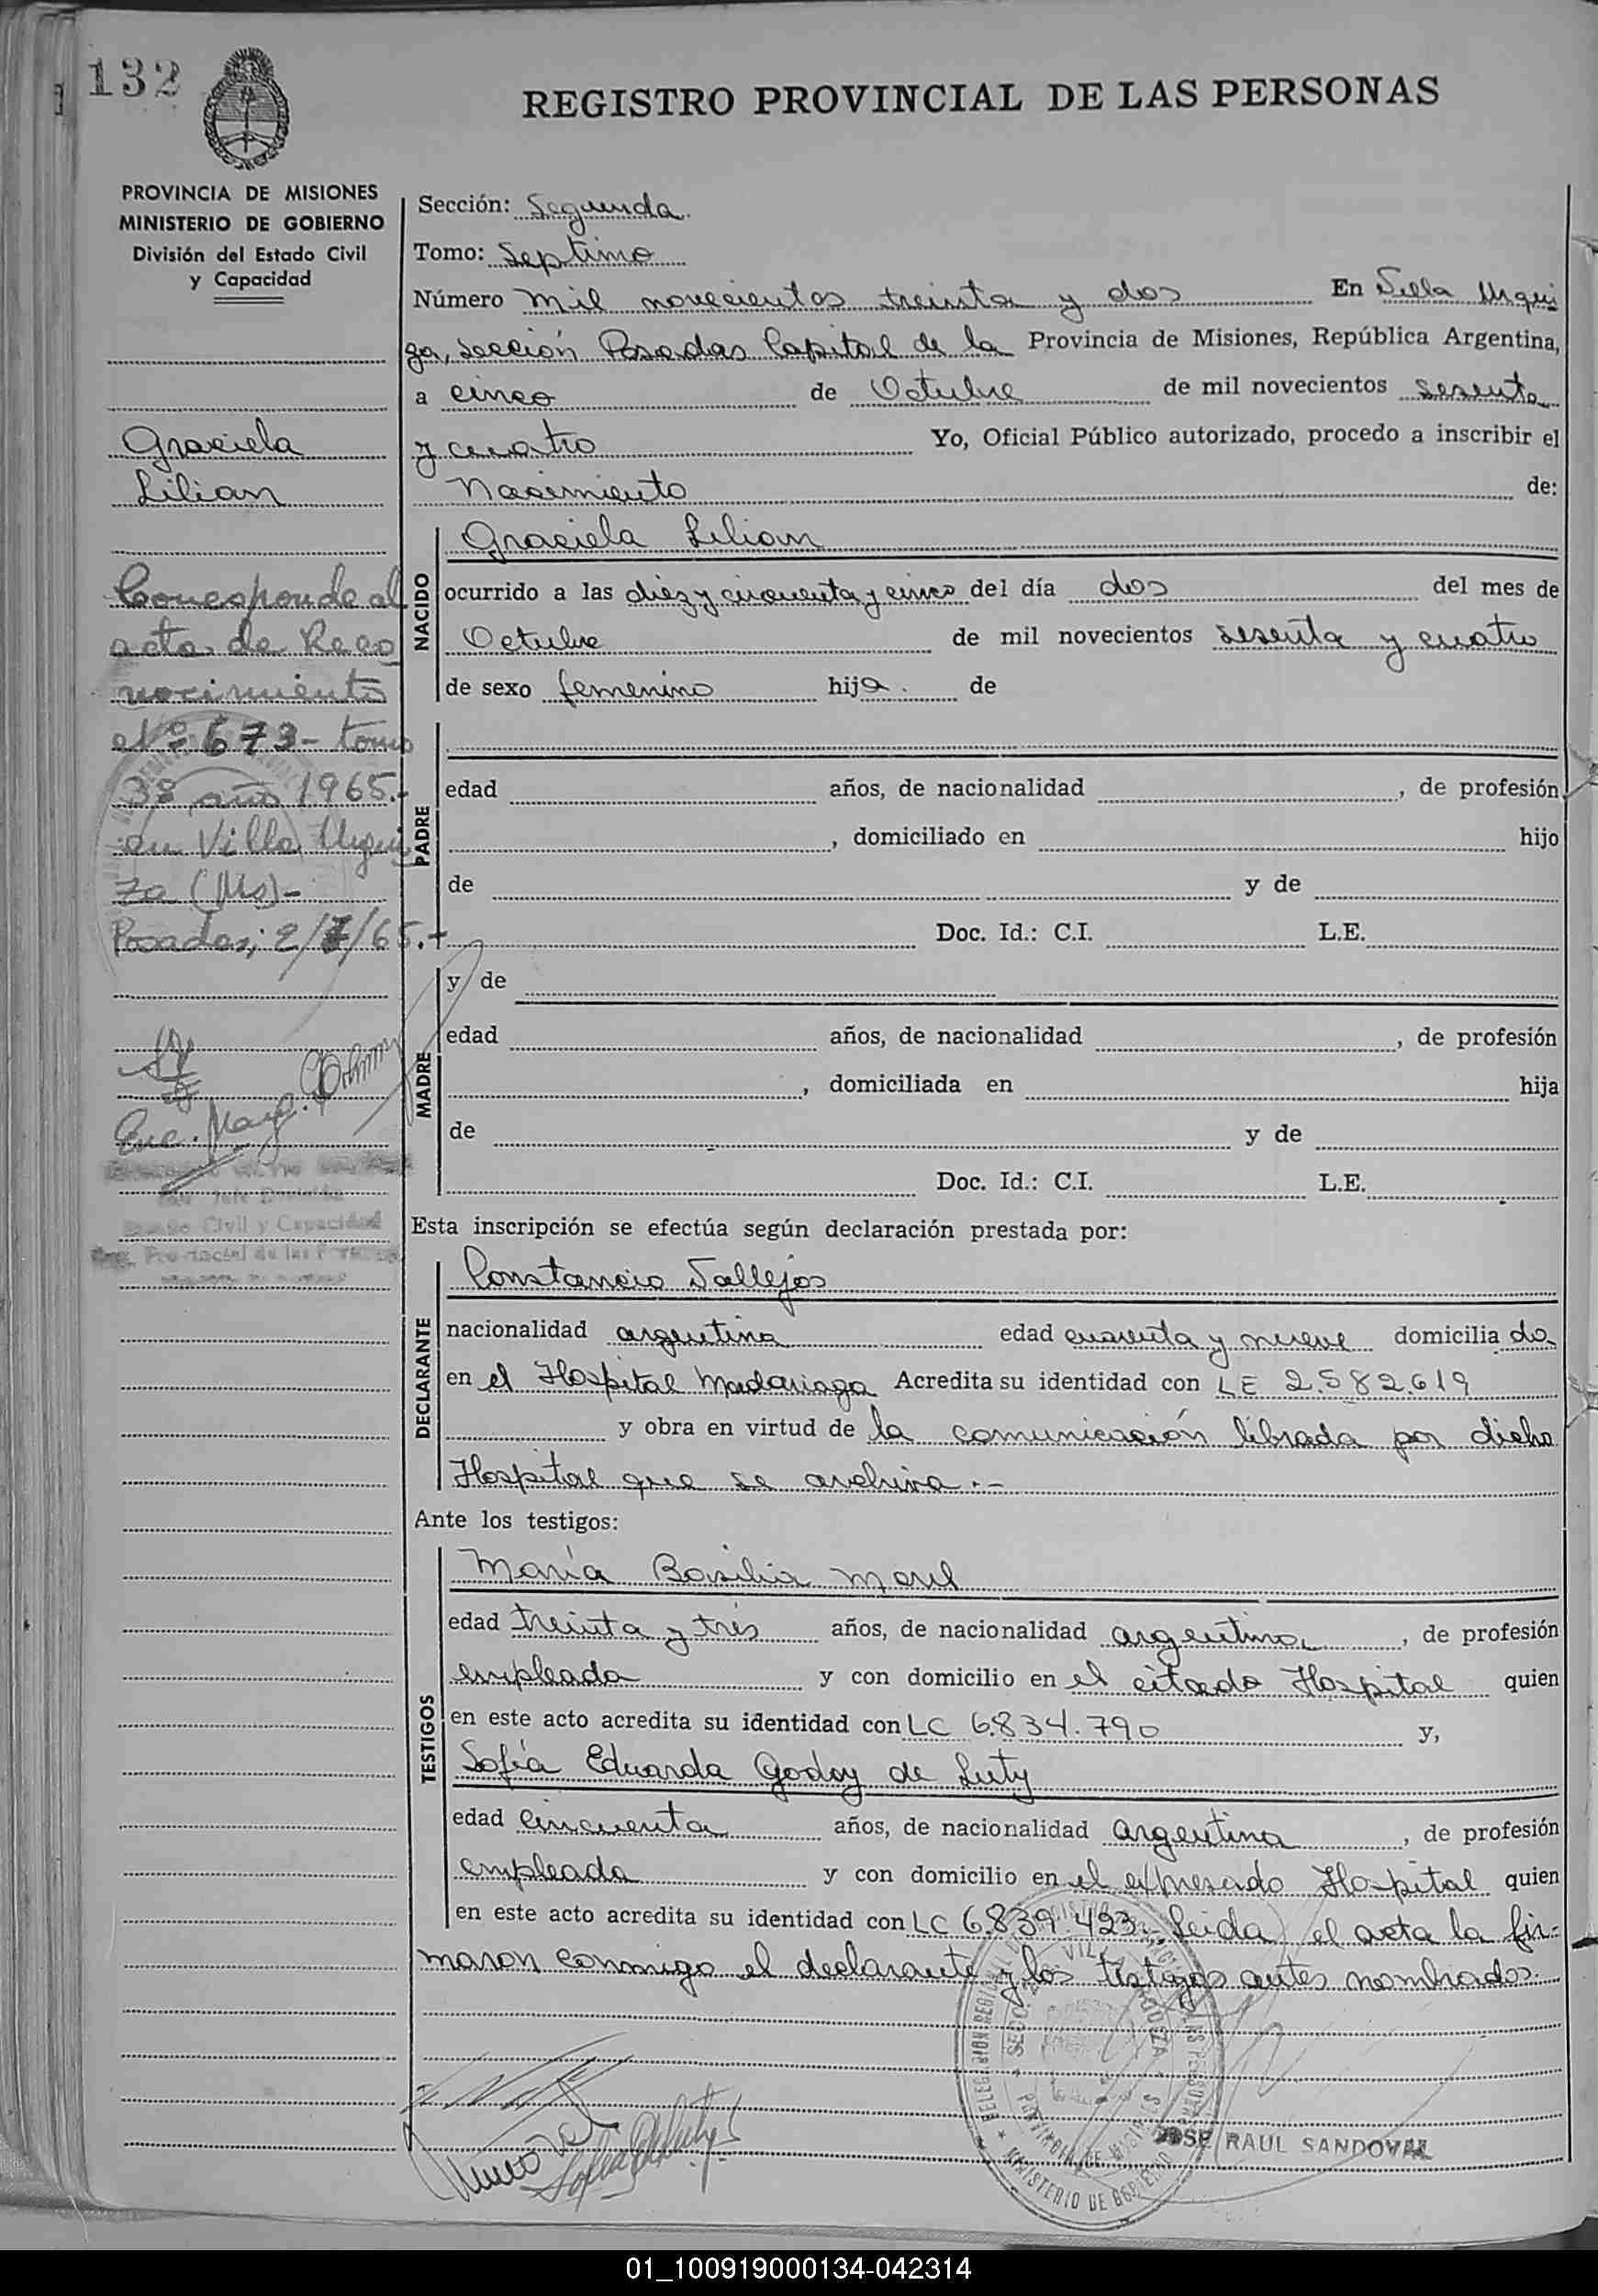 132
REGISTRO PROVINCIAL DE LAS PERSONAS
PROVINCIA DE MISIONES
MINISTERIO DE GOBIERNO
División del Estado Civil
y Capacidad
Graciela
Lilian
Corresponde al
acta de Reco
nocimiento
Nº 673- tomo
3º año 1965.-
en Villa Urqui
za (Ms)-
Posadas, 2/7/65.-
Enc. Marg.
Estado Civil y Capacidad
Reg. Provincial de las Personas
Sección: Segunda
Tomo: Septimo
Número mil novecientos treinta y dos En Villa Urqui
za, sección Posadas Capital de la Provincia de Misiones, República Argentina,
a cinco de Octubre de mil novecientos sesenta
y cuatro Yo, Oficial Público autorizado, procedo a inscribir el
Nacimiento de:
NACIDO
Graciela Lilian
ocurrido a las diez y cincuenta y cinco del día dos del mes de
Octubre de mil novecientos sesenta y cuatro
de sexo femenino hija. de
PADRE
edad años, de nacionalidad , de profesión
, domiciliado en hijo
de y de
Doc. Id.: C.I. L.E.
MADRE
y de
edad años, de nacionalidad , de profesión
, domiciliada en hija
de y de
Doc. Id.: C.I. L.E.
Esta inscripción se efectúa según declaración prestada por:
DECLARANTE
Constancio Vallejos
nacionalidad argentina edad cuarenta y nueve domicilia do
en el Hospital Madariaga Acredita su identidad con LE 2.582.619
y obra en virtud de la comunicación librada por dicho
Hospital que se archiva.-
Ante los testigos:
TESTIGOS
María Basilia
edad treinta y tres años, de nacionalidad argentina , de profesión
empleada y con domicilio en el citado Hospital quien
en este acto acredita su identidad con LC 6.834.790 y,
Sofía Eduarda Godoy de Luty
edad cincuenta años, de nacionalidad argentina , de profesión
empleada y con domicilio en el expresado Hospital quien
en este acto acredita su identidad con LC 6.839.423.- Leida el acta la fir-
maron conmigo el declarante y los testigos antes nombrados.
MINISTERIO DE GOBIERNO
PROVINCIA DE MISIONES
JOSE RAUL SANDOVAL
01_100919000134-042314